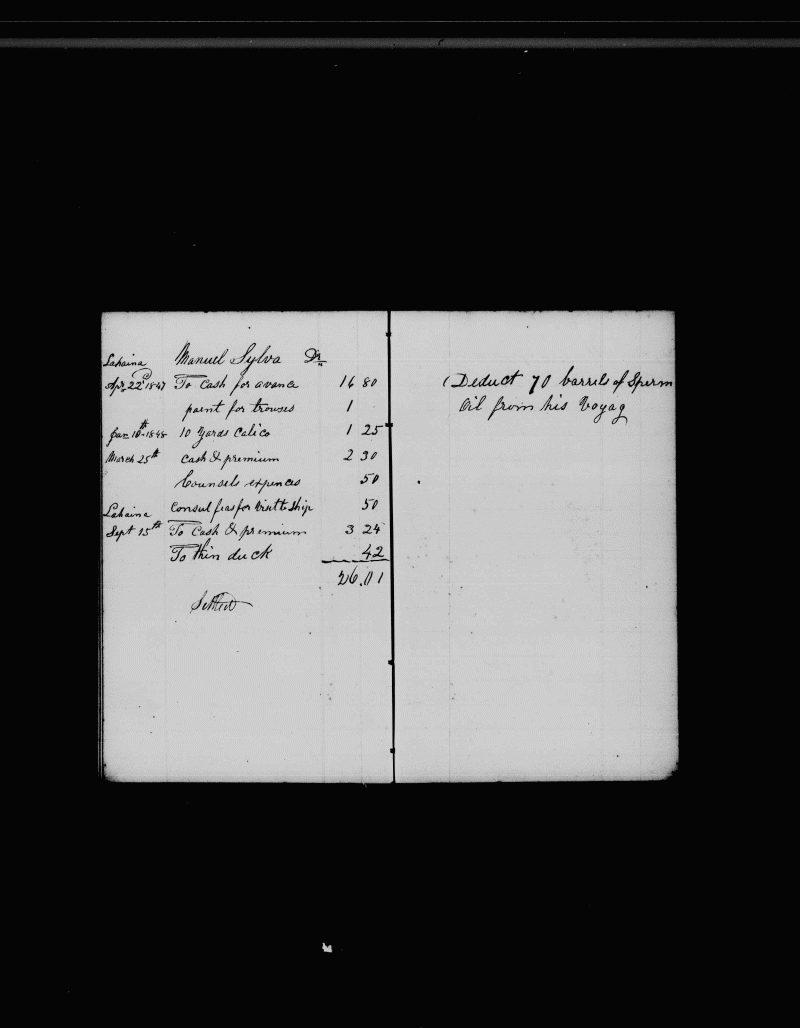 Lahaina Manuel Sylva Dr
Apr 22d 1847 To Cash for avance 16 80
paint for trouses 1
Jan 10th 1848 10 Yards Calico 1 25
March 25th Cash & premium 2 30
Counsels expences 50
Lahaina Consul feas for Visitt Ship 50
Sept 15th To Cash & premium 3 24
To thin duck 42
26.01
Settled
(Deduct 70 barrels of Sperm
Oil from his Voyag